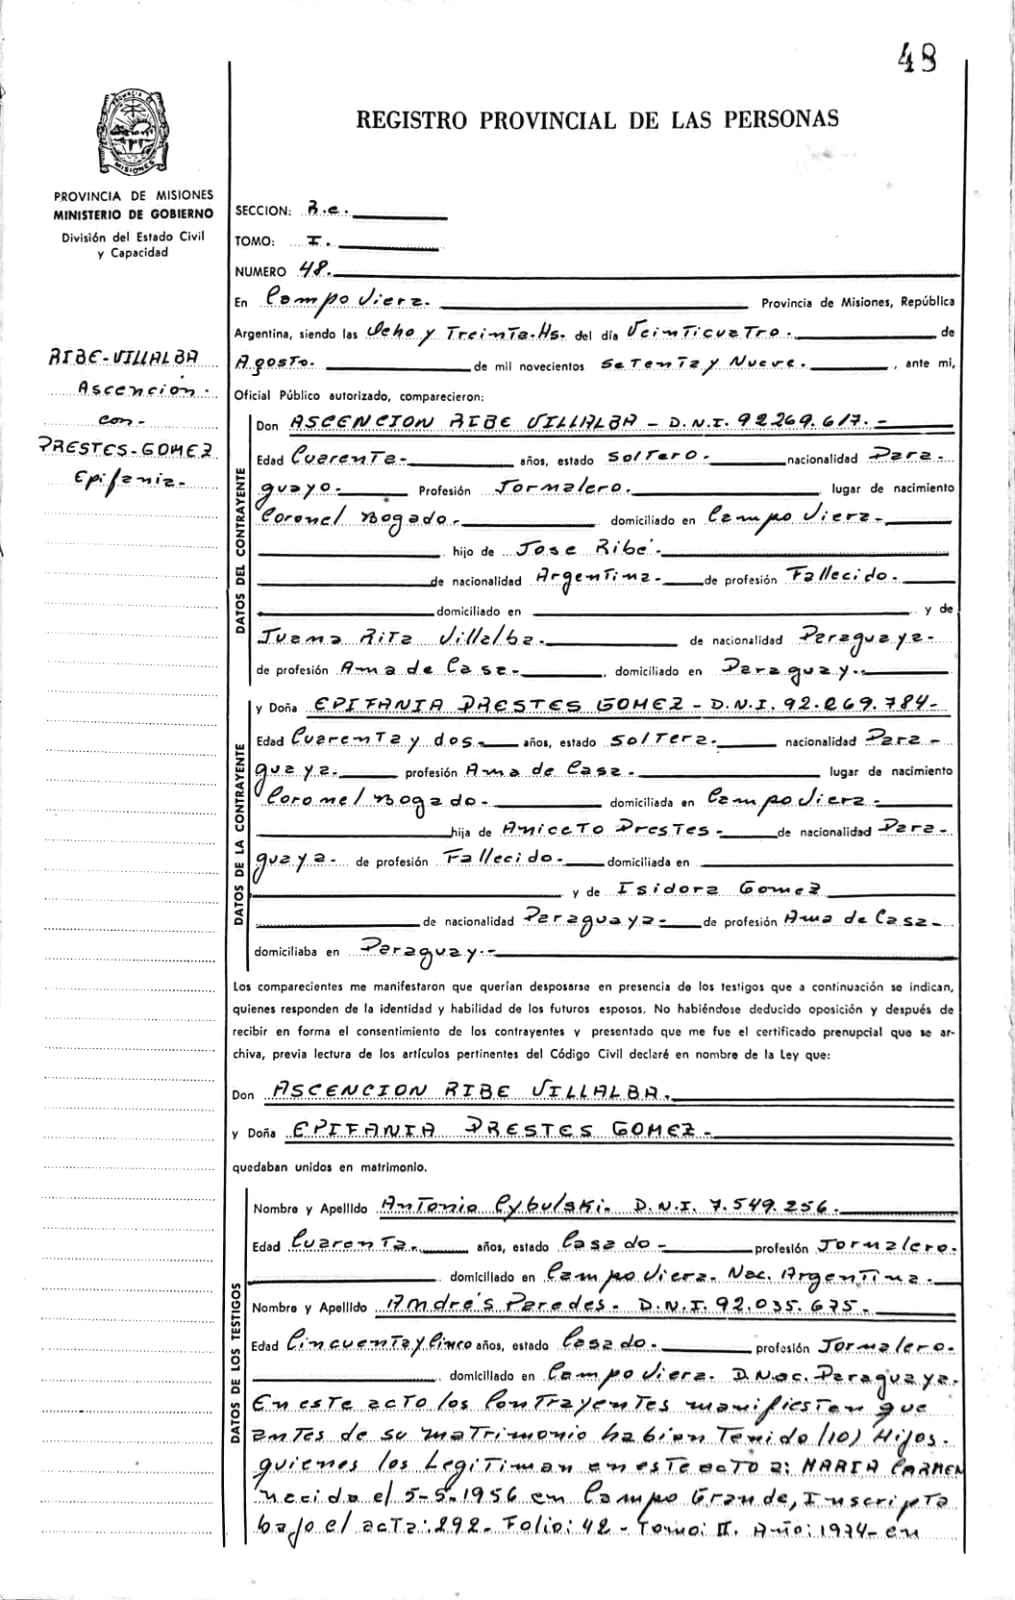 48
REGISTRO PROVINCIAL DE LAS PERSONAS
MISIONES
PROVINCIA DE MISIONES
MINISTERIO DE GOBIERNO
División del Estado Civil
y Capacidad
SECCION: R.e.
TOMO: I.
NUMERO 48.
En Campo Viera. Provincia de Misiones, República
Argentina, siendo las Ocho y Treinta-Hs. del día Veinticuatro. de
Agosto. de mil novecientos Setenta y Nueve. , ante mi,
Oficial Público autorizado, comparecieron:
RIBE-VILLALBA
Ascención-
con-
PRESTES-GOMEZ
Epifania-
DATOS DEL CONTRAYENTE
Don ASCENCION RIBE VILLALBA - D.N.I. 92.269.617.-
Edad Cuarenta- años, estado Soltero. nacionalidad Para-
guayo. Profesión Jornalero. lugar de nacimiento
Coronel Bogado. domiciliado en Campo Viera-
hijo de Jose Ribé.
de nacionalidad Argentina- de profesión Fallecido.
domiciliado en y de
Juana Rita Villalba. de nacionalidad Paraguaya-
de profesión Ama de Casa- , domiciliado en Paraguay.-
DATOS DE LA CONTRAYENTE
y Doña EPIFANIA PRESTES GOMEZ - D.N.I. 92.269.784-
Edad Cuarenta y dos años, estado Soltera. nacionalidad Para-
guaya. profesión Ama de Casa. lugar de nacimiento
Coronel Bogado- domiciliada en Campo Viera-
hija de Aniceto Prestes- de nacionalidad Para-
guaya- de profesión Fallecido- domiciliada en
y de Isidora Gomez
de nacionalidad Paraguaya- de profesión Ama de Casa-
domiciliaba en Paraguay.-
Los comparecientes me manifestaron que querían desposarse en presencia de los testigos que a continuación se indican,
quienes responden de la identidad y habilidad de los futuros esposos. No habiéndose deducido oposición y después de
recibir en forma el consentimiento de los contrayentes y presentado que me fue el certificado prenupcial que se ar-
chiva, previa lectura de los artículos pertinentes del Código Civil declaré en nombre de la Ley que:
Don ASCENCION RIBE VILLALBA.
y Doña EPIFANIA PRESTES GOMEZ-
quedaban unidos en matrimonio.
DATOS DE LOS TESTIGOS
Nombre y Apellido Antonio Cybulski- D.N.I. 7.549.256.
Edad Cuarenta. años, estado Casado- profesión Jornalero.
domiciliado en Campo Viera. Nac. Argentina.
Nombre y Apellido Andrés Paredes- D.N.I. 92.035.675.
Edad Cincuenta y Cinco años, estado Casado. profesión Jornalero.
domiciliado en Campo Viera. D.Nac. Paraguaya.
En este acto los Contrayentes manifiestan que
antes de su matrimonio habian Tenido (10) Hijos.
quienes los Legitiman en este acto a: MARIA CARMEN
necido el 5-5-1956 en Campo Grande, Inscripta
bajo el acta: 292- Folio: 42 - Tomo: II. Año: 1974- en